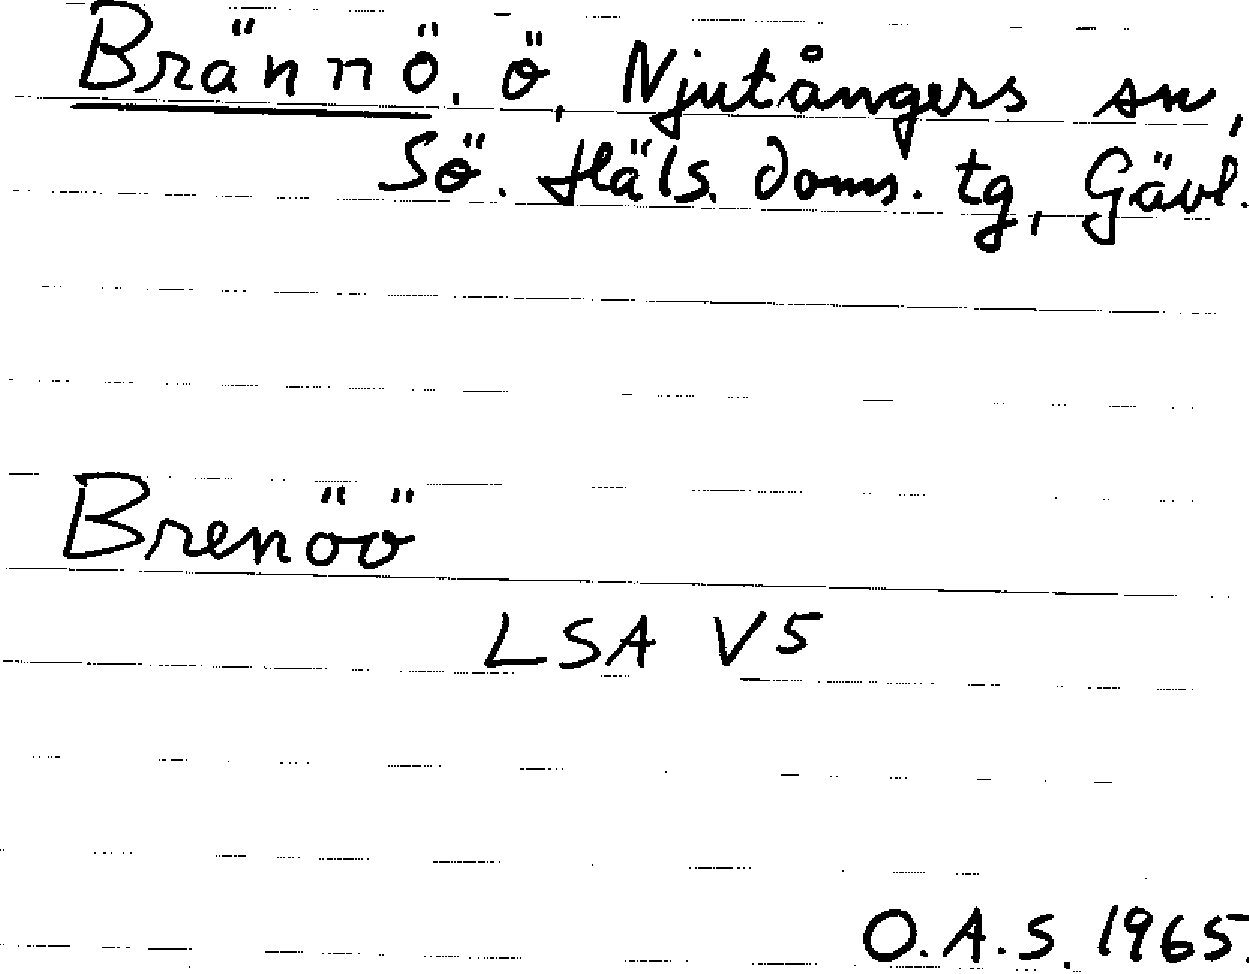 Brännö, ö, Njutångers sn,
Sö. Häls. doms. tg, Gävl.
Brenöö
LSA V5
O.A.S. 1965.